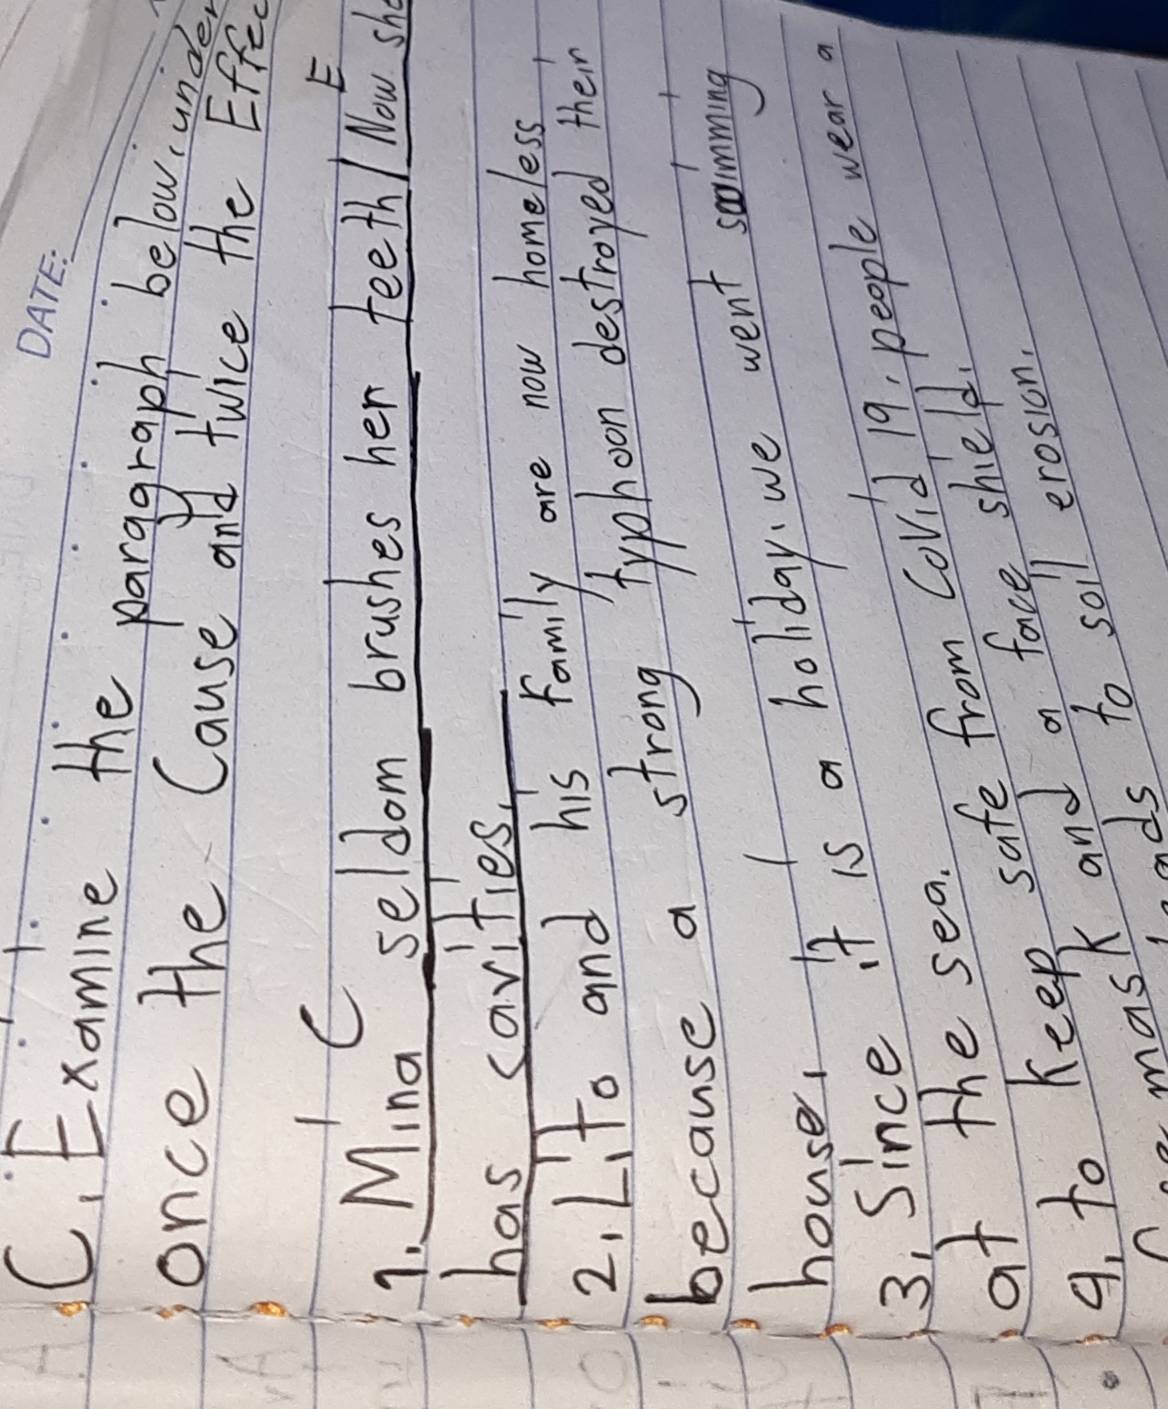 DATE:
C. Examine the paragraph below, under
once the Cause and twice the Effec
C E
1. Mina seldom brushes her teeth / Now she
has cavities.
2. Lito and his family are now homeless
because a strong typhoon destroyed their
house.
3. Since it is a holiday, we went swimming
at the sea.
4. to keep safe from Covid 19, people wear a
mask and a face shield.
to soil erosion.